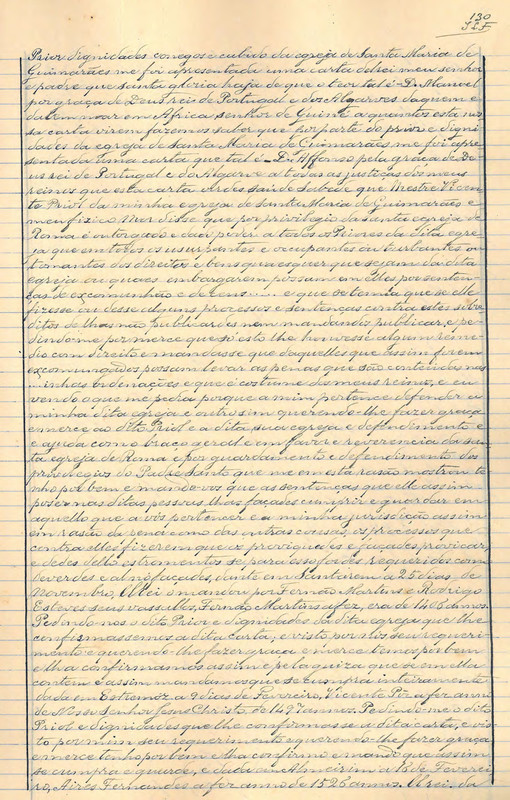 130
Prior dignidades conegos e cabido da egreja de Santa Maria de
Guimarães me foi apresentada uma carta del rei meu senhor
e padre que santa gloria haja de que o theor tal é - D. Manuel
por graça de Deus rei de Portugal e dos Algarves daquem e
dalem mar em Africa senhor de Guiné a quantos esta nos
sa carta virem fazemos saber que por parte do prior e digni
dades da egreja de Santa Maria de Guimarães me foi apre
sentada uma carta que tal é - D. Affonso pela graça de De
us rei de Portugal e do Algarve a todas as justiças dos meus
reinos que esta carta virdes saude Sabede que Mestre Vicen
te Priol da minha egreja de Santa Maria de Guimarães e
meu fisico Mor disse que por privilegio da santa egreja de
Roma é outorgado e dado poder a todos os Priores da dita egre
ja que em todos os usurpantes e occupantes ou turbantes ou
tornantes dos direitos e bens quaesquer que sejam da dita
egreja os quaes embargarem possam em elles por senten
ças de excomunhão e e que se temia que se elle
fizesse ou désse alguns processos e sentenças contra estes sobre
ditos de lhas não publicardes nem mandardes publicar, e pe
dindo-me por merce que a esto lhe houvesse algum reme
dio com direito e mandasse que daquelles que assim forem
excomungados possam levar as penas que são conteudas nas
minhas ordenações e que é costume dos meus reinos, e eu
vendo o que me pedia porque a mim pertence defender a
minha dita egreja e outro sim querendo-lhe fazer graça
e merce ao dito Priol e a dita sua egreja e defendimento e
e ajuda como o braço geral e em favor e reverencia da san
ta egreja de Roma e por guardamento e defendimento dos
privilegios do Padre Santo que me em esta rasão mostrou te
nho por bem e mando-vos que as sentenças que elle assim
poser nas ditas pessoas lhas façades cumprir e guardar em
aquello que a vós pertencer e a minha jurisdicção assim
em rasão da pena como das outras cousas, os processos que
contra elles fizerem que os e façades provicar,
e dedes dello estromentos se para esso fordes requeridos com
deverdes e al não façades, dante em Santarem a 25 dias de
Novembro, El rei o mandou por Fernão Martins e Rodrigo
Esteves seus vassallos, Fernão Martins a fez, era de 1406 annos.
Pedindo-nos o dito Prior e dignidades da dita egreja que lhe
confirmassemos a dita carta, e visto por nós seu requeri-
mento e querendo-lhe fazer graça e merce temos por bem
e lha confirmamos assim e pela guiza que se em ella
contem e assim mandamos que se cumpra inteiramente
dada em Estremoz a 2 dias de Fevereiro, Vicente Piz a fez anno
de Nosso Senhor Jesus Christo, de 1497 annos. Pedindo-me o dito
Priol e dignidades que lhe confirmasse a dita carta, e vis
to por mim seu requerimento e querendo-lhe fazer graça
e merce tenho por bem e lha confirmo e mando que assim
se cumpra e guarde, e dada em Almeirim a 16 de Feverei
ro, Aires Fernandes a fez anno de 1526 annos. El rei, da